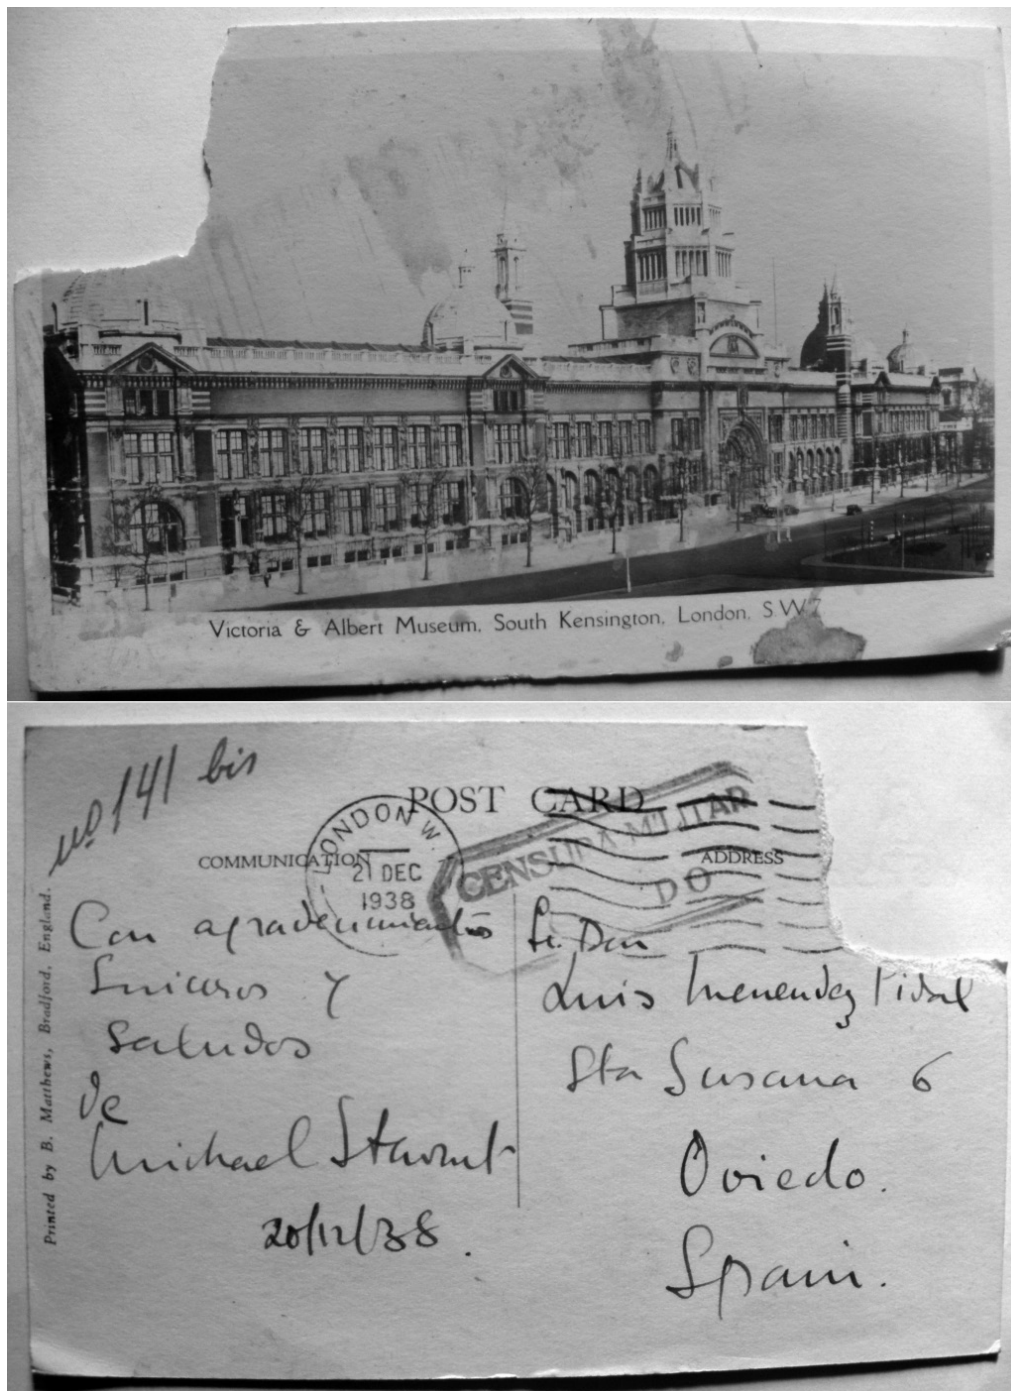 Victoria & Albert Museum, South Kensington, London, S W 7
nº 141 bis
POST CARD
COMMUNICATION
ADDRESS
LONDON W.
21 DEC
1938
CENSURA MILITAR
DO
Printed by B. Matthews, Bradford, England.
Con agradecimientos
Sinceros y
Saludos
de
Michael Stewart
20/12/38.
Sr. Don
Luis Menendez Pidal
Sta Susana 6
Oviedo.
Spain.